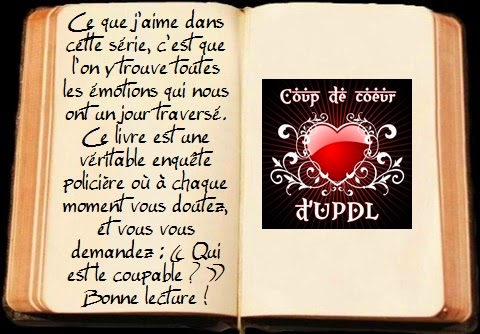 Ce que j'aime dans
cette série, c'est que
l'on y trouve toutes
les émotions qui nous
ont un jour traversé.
Ce livre est une
véritable enquête
policière où à chaque
moment vous doutez,
et vous vous
demandez : « Qui
est le coupable ? »
Bonne lecture !
Coup de coeur
d'UPDL